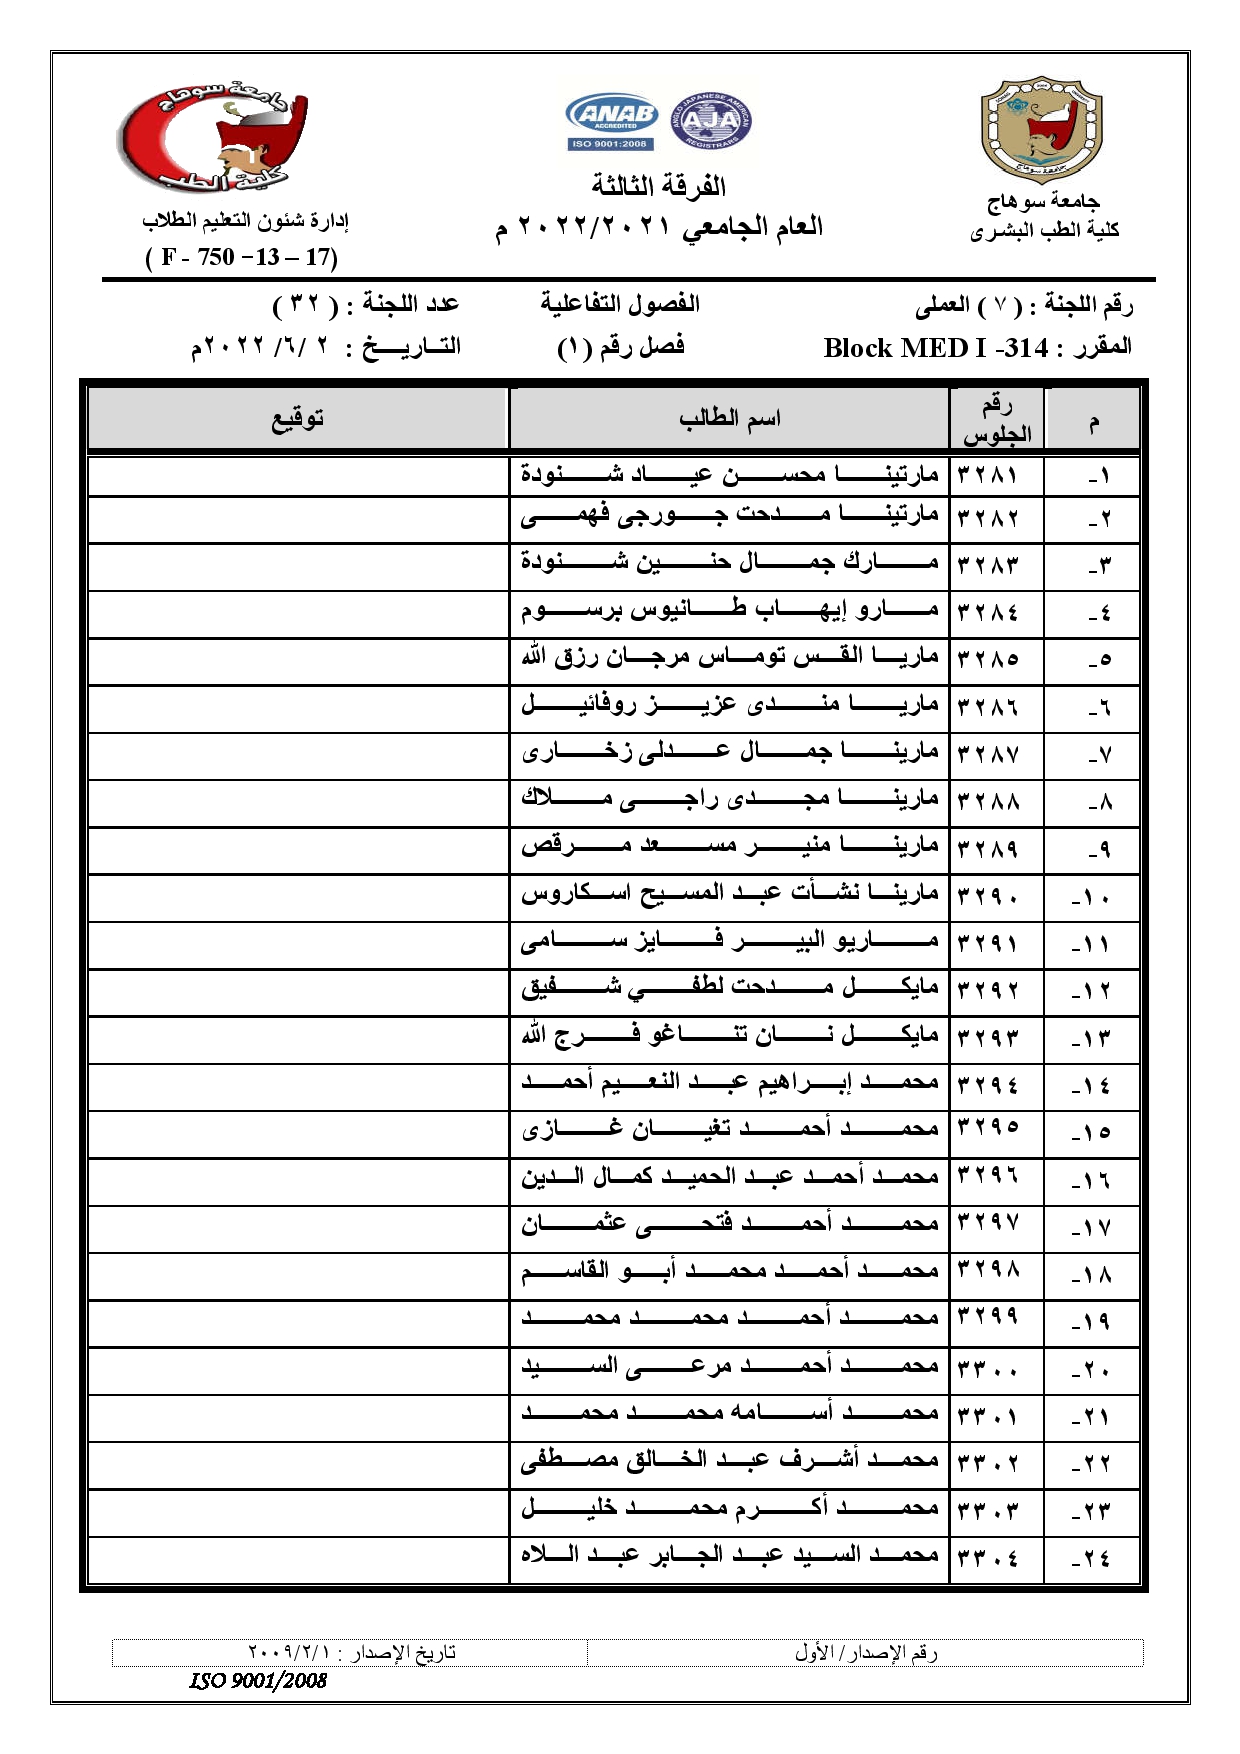 جامعة سوهاج
كلية الطب
ANAB
ACCREDITED
ISO 9001:2008
ANGLO JAPANESE AMERICAN
AJA
REGISTRARS
جامعة سوهاج
جامعة سوهاج
كلية الطب البشرى
الفرقة الثالثة
العام الجامعي ٢٠٢٢/٢٠٢١ م
إدارة شئون التعليم الطلاب
( F - 750 -13 – 17)
رقم اللجنة : ( ٧ ) العملى الفصول التفاعلية عدد اللجنة : ( ٣٢ )
المقرر : Block MED I -314 فصل رقم (١) التـاريـــخ : ٢ /٦/ ٢٠٢٢م
م رقم الجلوس اسم الطالب توقيع
١- ٣٢٨١ مارتينا محسن عياد شنودة
٢- ٣٢٨٢ مارتينا مدحت جورجى فهمى
٣- ٣٢٨٣ مارك جمال حنين شنودة
٤- ٣٢٨٤ مارو إيهاب طانيوس برسوم
٥- ٣٢٨٥ ماريا القس توماس مرجان رزق الله
٦- ٣٢٨٦ ماريا مندى عزيز روفائيل
٧- ٣٢٨٧ مارينا جمال عدلى زخارى
٨- ٣٢٨٨ مارينا مجدى راجى ملاك
٩- ٣٢٨٩ مارينا منير مسعد مرقص
١٠- ٣٢٩٠ مارينا نشأت عبد المسيح اسكاروس
١١- ٣٢٩١ ماريو البير فايز سامى
١٢- ٣٢٩٢ مايكل مدحت لطفي شفيق
١٣- ٣٢٩٣ مايكل نان تناغو فرج الله
١٤- ٣٢٩٤ محمد إبراهيم عبد النعيم أحمد
١٥- ٣٢٩٥ محمد أحمد تغيان غازى
١٦- ٣٢٩٦ محمد أحمد عبد الحميد كمال الدين
١٧- ٣٢٩٧ محمد أحمد فتحى عثمان
١٨- ٣٢٩٨ محمد أحمد محمد أبو القاسم
١٩- ٣٢٩٩ محمد أحمد محمد محمد
٢٠- ٣٣٠٠ محمد أحمد مرعى السيد
٢١- ٣٣٠١ محمد أسامه محمد محمد
٢٢- ٣٣٠٢ محمد أشرف عبد الخالق مصطفى
٢٣- ٣٣٠٣ محمد أكرم محمد خليل
٢٤- ٣٣٠٤ محمد السيد عبد الجابر عبد اللاه
رقم الإصدار/ الأول تاريخ الإصدار : ٢٠٠٩/٢/١
ISO 9001/2008